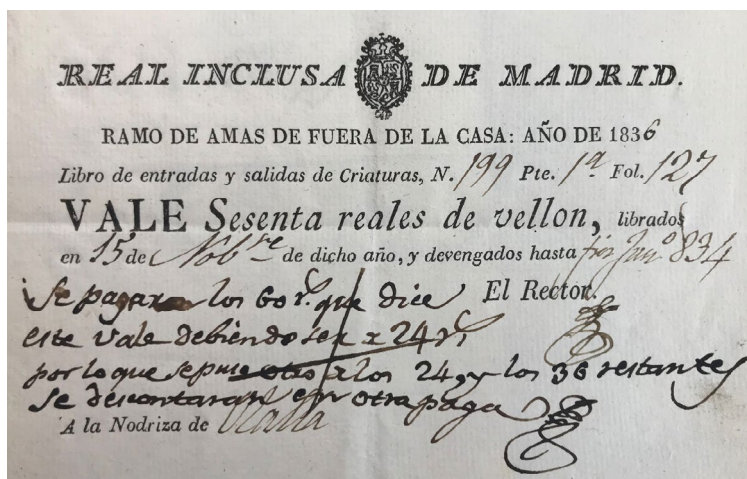 REAL INCLUSA DE MADRID.
RAMO DE AMAS DE FUERA DE LA CASA: AÑO DE 1836
Libro de entradas y salidas de Criaturas, N. 199 Pte. 1ª Fol. 127
VALE Sesenta reales de vellon, librados
en 15 de Nobre de dicho año, y devengados hasta fin Junº 834
Se pagaran los 60 rs. que dice El Rector.
este vale debiendo ser 24 rs
por lo que se puse otro los 24, y los 36 restantes
se descontaran en otra paga
A la Nodriza de